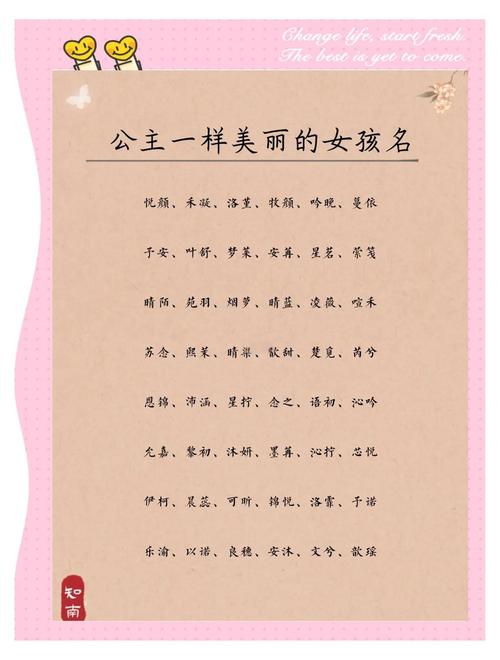 Change life, start fresh.
The best is yet to come.
公主一样美丽的女孩名
悦颜、禾凝、洛堇、牧颜、吟晚、蔓依
予安、叶舒、梦茱、安苒、星茗、萦笺
晴陌、苑羽、烟萝、晴蓝、凌薇、喧禾
苏念、熙茉、晴梁、歆甜、楚觅、芮兮
恩锦、沛涵、星拧、念之、语初、沁吟
允嘉、黎初、沐妍、墨苒、沁拧、芯悦
伊柯、晨蕊、可昕、锦悦、洛霏、予诺
乐渝、以诺、良穗、安沐、文兮、歆瑶
知南